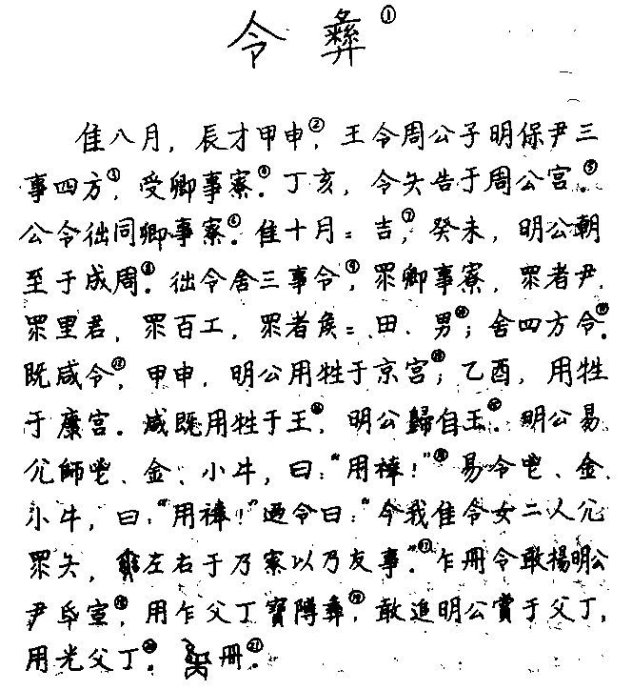 令彝①
隹八月，辰才甲申②，王令周公子明保尹三
事四方③，受卿事寮④。丁亥，令夨告于周公宫。⑤
公令𢓊同卿事寮⑥。隹十月＝吉⑦，癸未，明公朝
至于成周⑧。𢓊令舍三事令⑨，眔卿事寮，眔者尹，
眔里君，眔百工，眔者侯＝、田、男⑩；舍四方令⑪。
既咸令⑫，甲申，明公用牲于京宫⑬；乙酉，用牲
于康宫。咸既用牲于王⑭，明公歸自王⑮。明公易
亢師鬯、金、小牛，曰：“用𥛱！”⑯易令鬯、金、
小牛，曰：“用𥛱！”迺令曰：“今我隹令女二人亢
眔夨，奭左右于乃寮以乃友事。”⑰乍册令敢揚明公
尹氒宣⑱，用乍父丁寶𨻰彝⑲，敢追明公賞于父丁，
用光父丁⑳。册㉑。